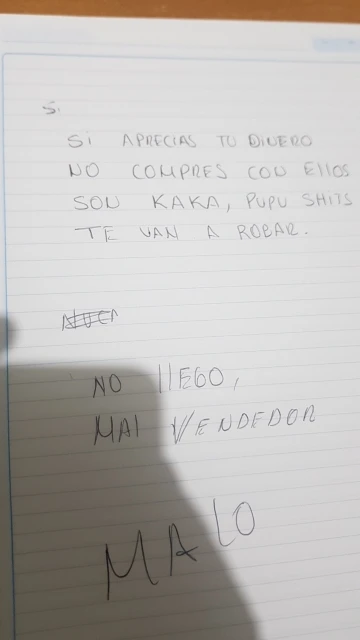 S.
SI APRECIAS TU DINERO
NO COMPRES CON EllOS
SON KAKA, PUPU SHITS
TE VAN A ROBAR.
NO llEGO,
MAl VENDEDOR
MALO